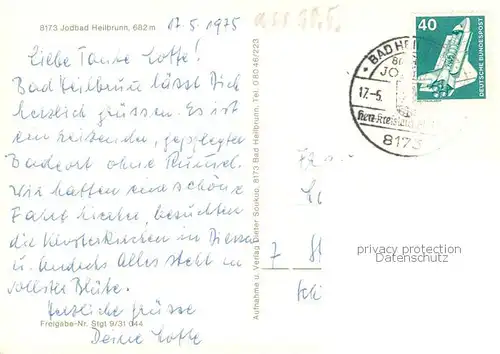 8173 Jodbad Heilbrunn, 682 m
17.5.1975
Liebe Tante Lotte!
Bad Heilbrunn lässt Dich
herzlich grüssen. Es ist
ein reizender, gepflegter
Badeort ohne Rummel.
Wir hatten eine schöne
Fahrt hierher, besuchten
die Klosterkirchen in Diessen
u. Andechs. Alles steht in
vollster Blüte.
Herzliche Grüsse
Deine Lotte
Freigabe-Nr. Stgt 9/31 044
Aufnahme u. Verlag Dieter Soukup, 8173 Bad Heilbrunn, Tel. 080 46/223
40
DEUTSCHE BUNDESPOST
BAD HEIL
17.-5.
8173
7
privacy protection
Datenschutz